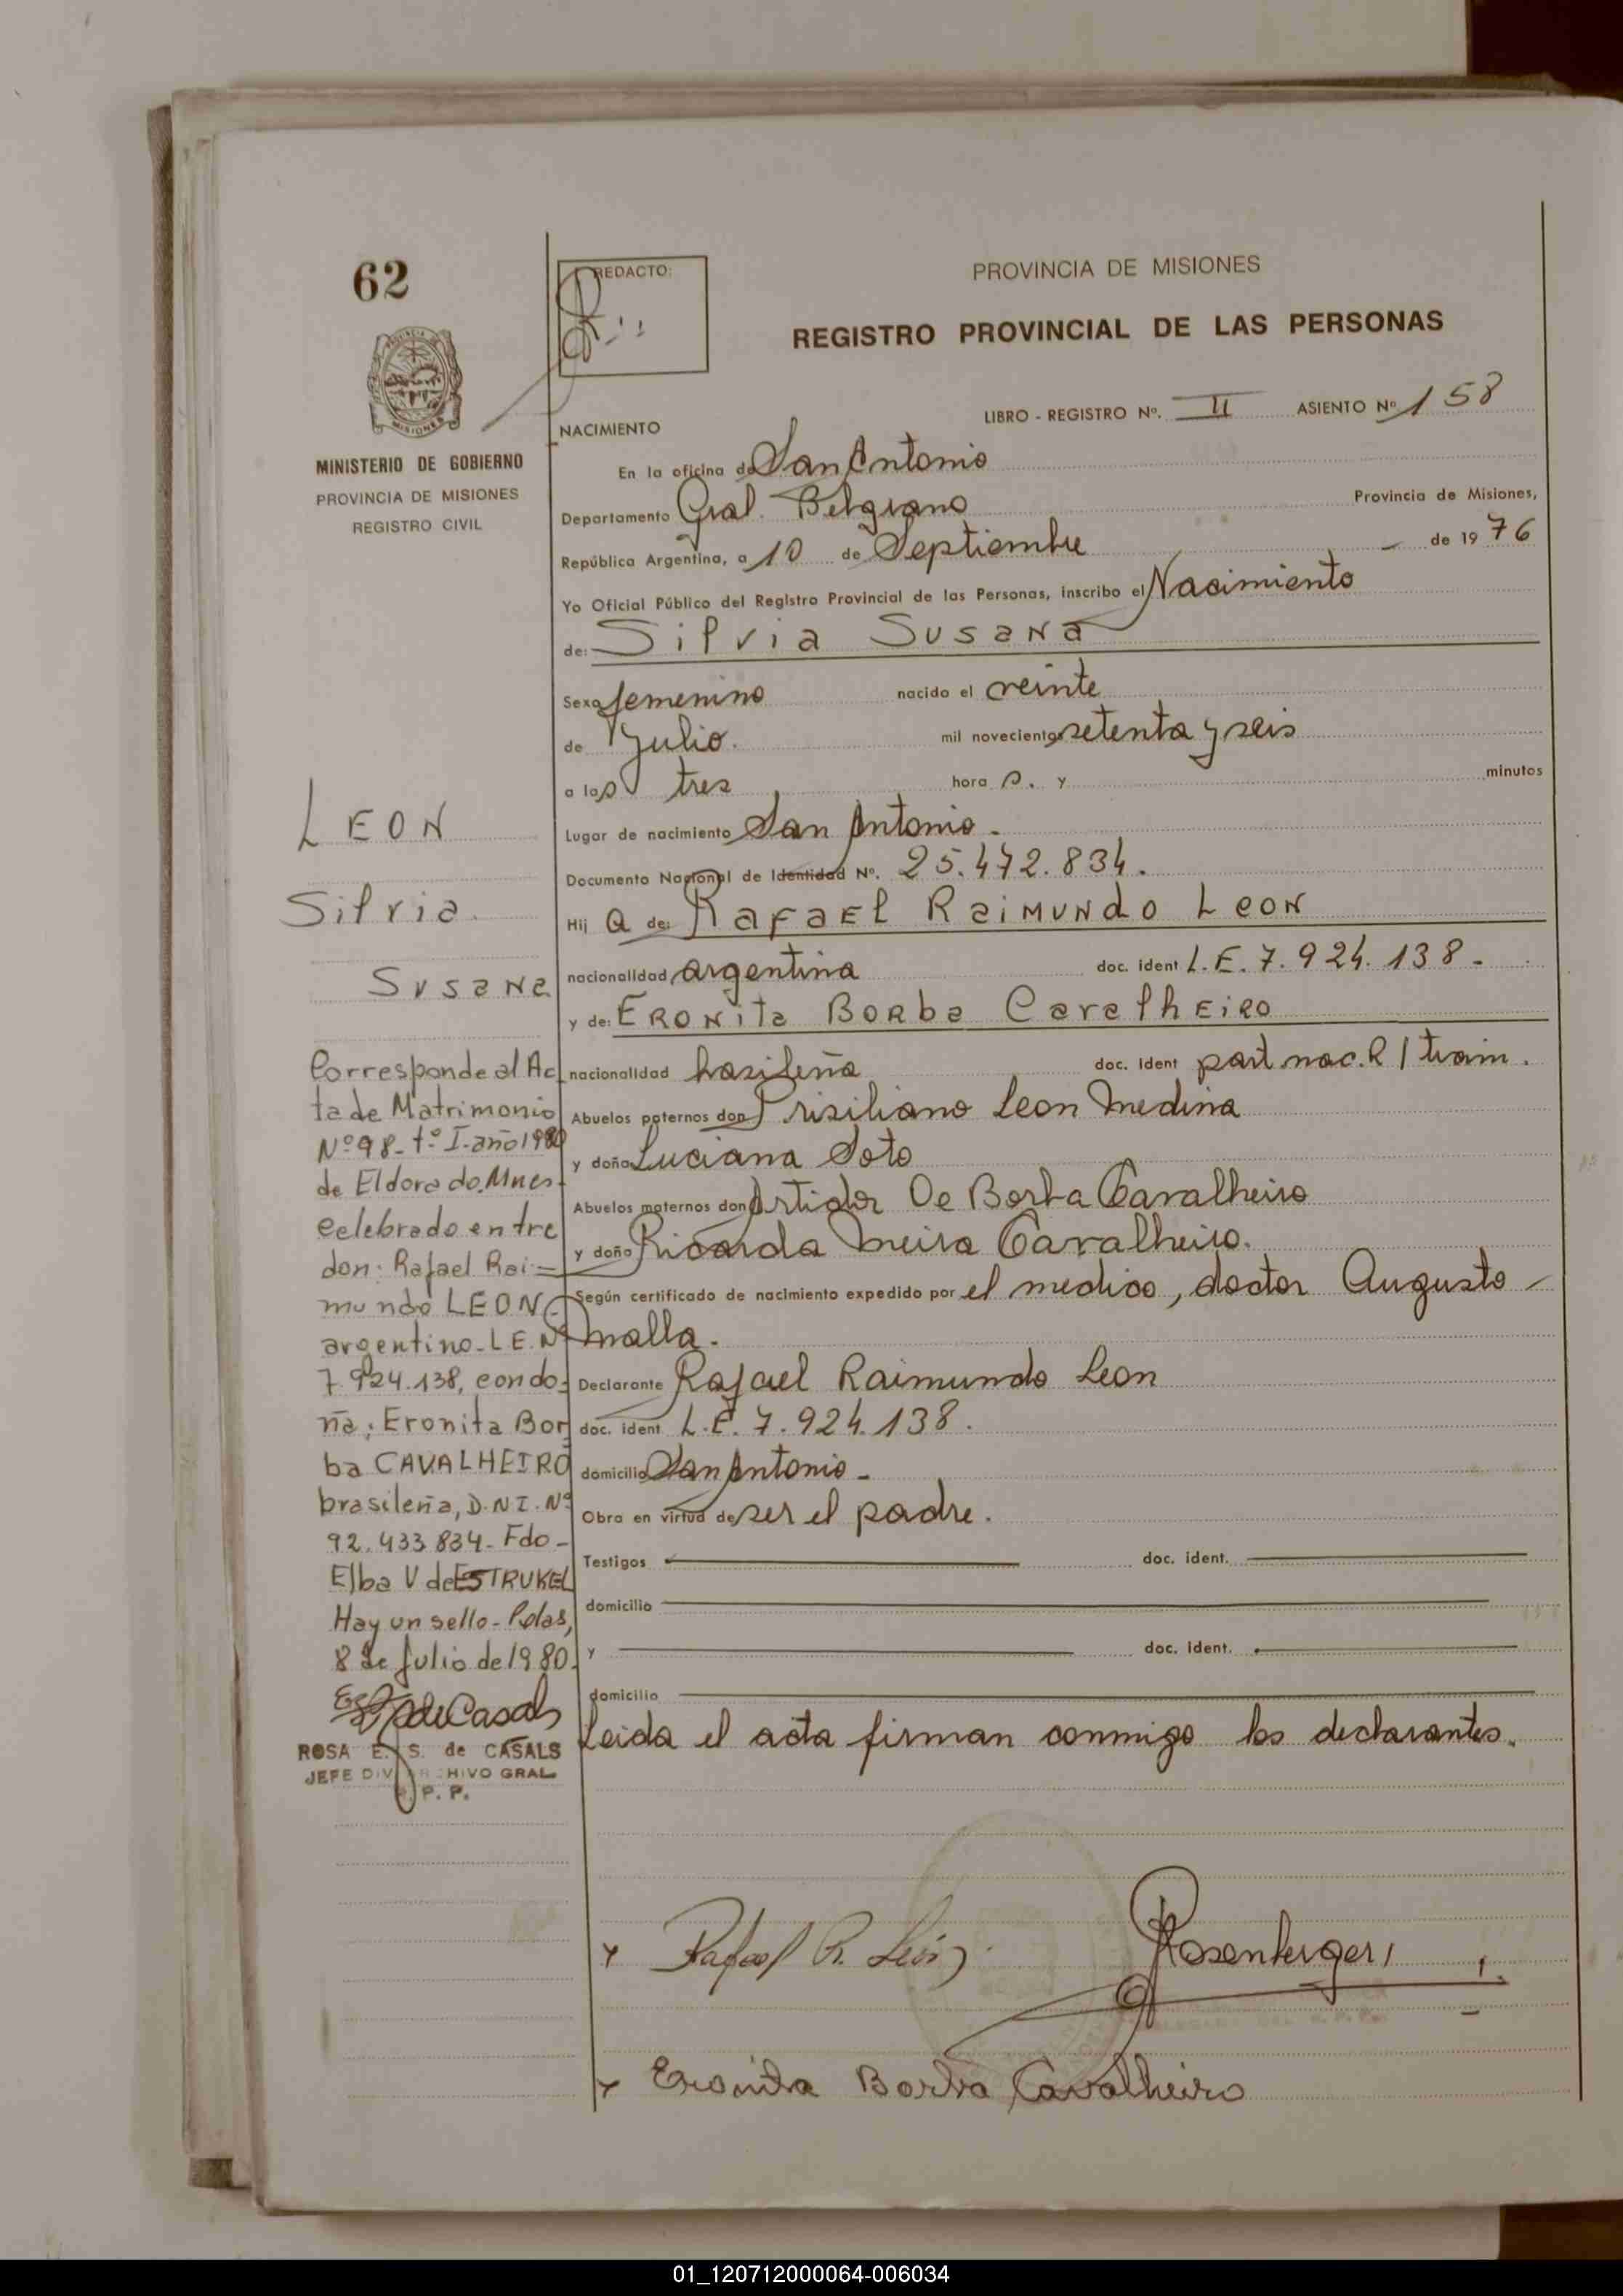 62
REDACTO:
PROVINCIA DE MISIONES
REGISTRO PROVINCIAL DE LAS PERSONAS
LIBRO - REGISTRO Nº. II ASIENTO Nº 158
MISIONES
MINISTERIO DE GOBIERNO
PROVINCIA DE MISIONES
REGISTRO CIVIL
NACIMIENTO
En la oficina de San Antonio
Departamento Gral. Belgrano Provincia de Misiones,
República Argentina, a 10 de Septiembre de 1976
Yo Oficial Público del Registro Provincial de las Personas, inscribo el Nacimiento
de: Silvia Susana
Sexo femenino nacido el veinte
de Julio. mil novecientos setenta y seis
a las tres hora s. y minutos
Lugar de nacimiento San Antonio.
Documento Nacional de Identidad Nº. 25.472.834.
Hij a de: Rafael Raimundo Leon
nacionalidad argentina doc. ident L.E. 7.924.138-
y de: Eronita Borba Cavalheiro
nacionalidad brasileña doc. ident part nac. R/ tram.
Abuelos paternos don Prisiliano Leon Medina
y doña Luciana Soto
Abuelos maternos don Artidor De Borba Cavalheiro
y doña Ricarda Meira Cavalheiro.
Según certificado de nacimiento expedido por el medico, doctor Augusto
Malla.
Declarante Rafael Raimundo Leon
doc. ident L.E. 7.924.138.
domicilio San Antonio -
Obra en virtud de ser el padre.
Testigos doc. ident.
domicilio
y doc. ident.
domicilio
Leida el acta firman conmigo los declarantes.
LEON
Silvia
Susana
Corresponde al Ac
ta de Matrimonio
Nº 98- tº I- año 1980
de Eldorado. Mnes-
celebrado entre
don: Rafael Rai=
mundo LEON-
argentino- L E. Nº
7.924.138, con do-
ña: Eronita Bor
ba CAVALHEIRO
brasileña, D.N I. Nº
92.433.834- Fdo-
Elba V de ESTRUKEL
Hay un sello- Pdas,
8 de Julio de 1980.
de Casals
ROSA E. S. de CASALS
JEFE DIV ARCHIVO GRAL
R. P. P.
Rafael R. León
Rosenberger
Eronita Borba Cavalheiro
01_120712000064-006034